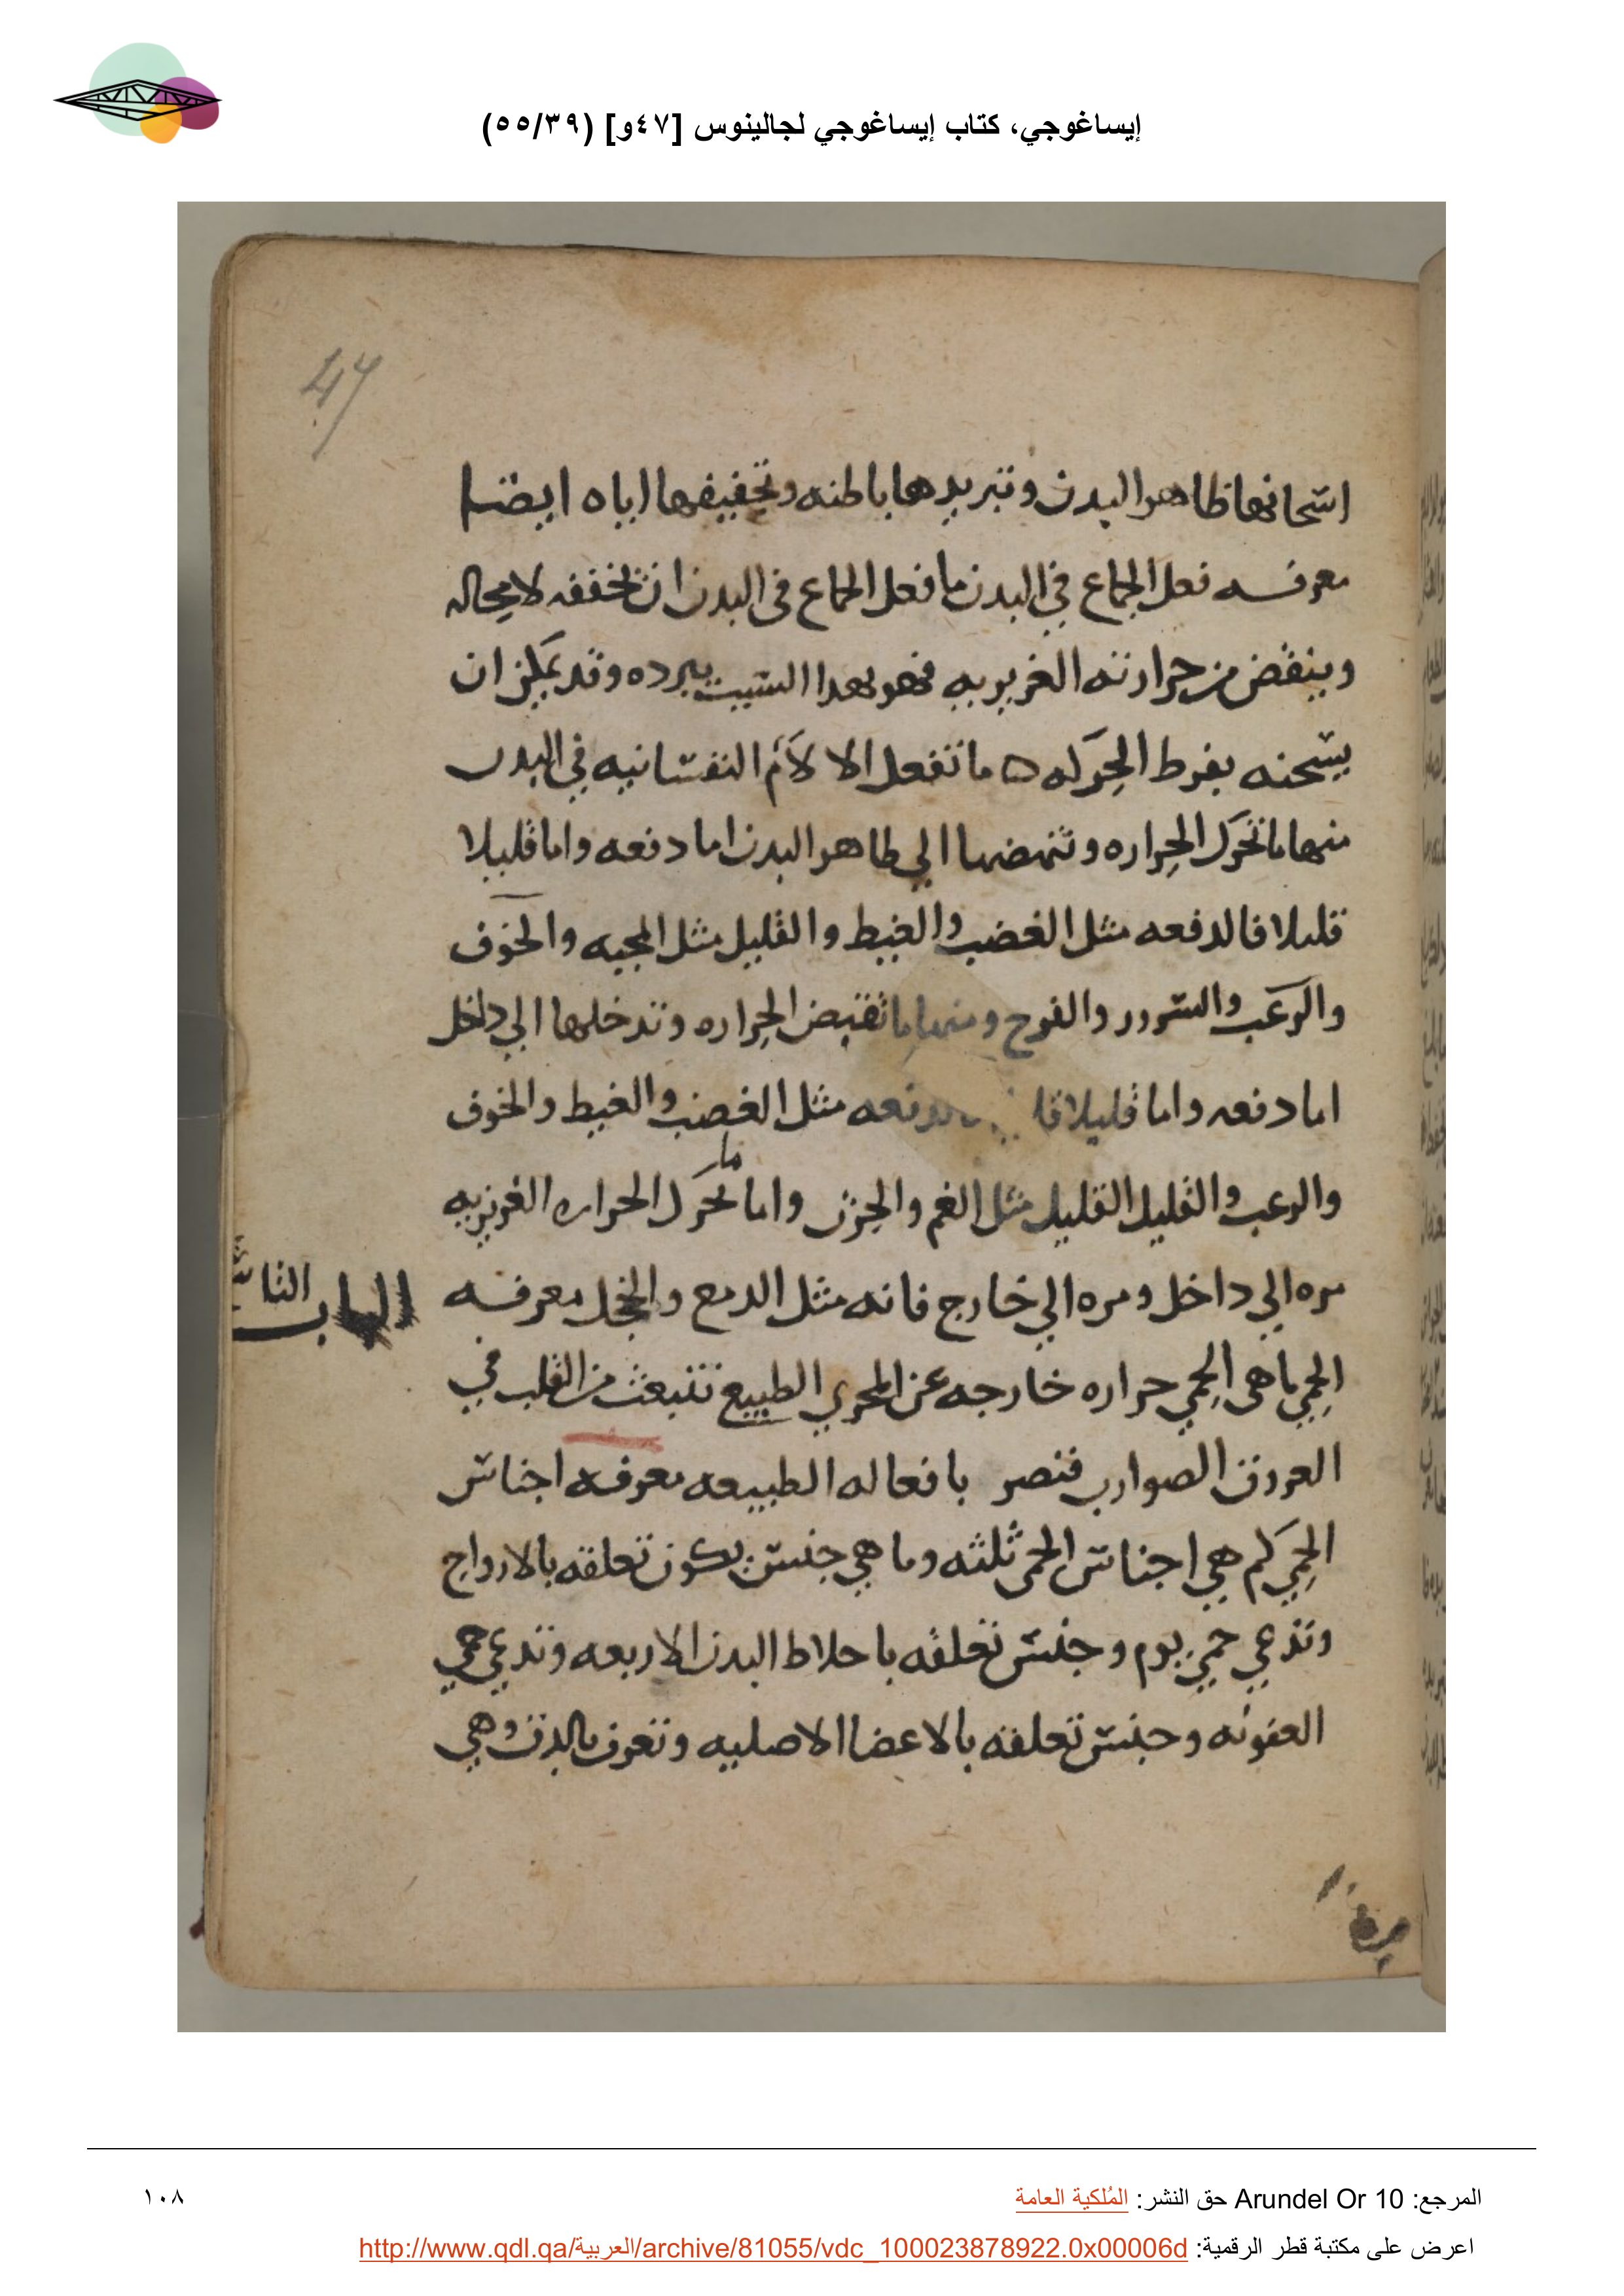 إيساغوجي، كتاب إيساغوجي لجالينوس [٤٧و] (٥٥/٣٩)
47
اسحانها ظاهر البدن وتبريدها باطنه وتجفيفها اياه ايضا
معرفه فعل الجماع في البدن ما فعل الجماع في البدن ان يخففه لا محاله
وينقض من حرارته الغريزيه فهو بهدا السبب يبرده وقد يمكن ان
يسخنه بفرط الحركه ه ما تفعل الا لام النفسانيه في البدن
منها ما تحرك الحراره وتنهضها الي ظاهر البدن اما دفعه واما قليلا
قليلا فالدفعه مثل الغضب والغيط والقليل مثل المحبه والخوف
والرعب والسرور والفرح ومنها ما تقبض الحراره وتدخلها الي داخل
اما دفعه واما قليلا مثل الغضب والغيط والخوف
والرعب والقليل القليل مثل الغم والحزن واما ما تحرك الحراره الغريزيه
مره الي داخل ومره الي خارج فانه مثل الدمع والخجل معرفه
الباب
الحمي ما هي الحمي حراره خارجه عن المجري الطبيع تنبعث من القلب في
العروق الصوارب فتصر بافعاله الطبيعه معرفه اجناس
الحمي كم هي اجناس الحمي ثلثه وما هي جنس يكون تعلقه بالارواح
وتدعي حمي يوم وجنس تعلقه باخلاط البدن الاربعه وتدعي حمي
العفونه وجنس تعلقه بالاعضا الاصليه وتعرف بالدق وهي
المرجع: Arundel Or 10 حق النشر: المُلكية العامة
١٠٨
اعرض على مكتبة قطر الرقمية: http://www.qdl.qa/العربية/archive/81055/vdc_100023878922.0x00006d